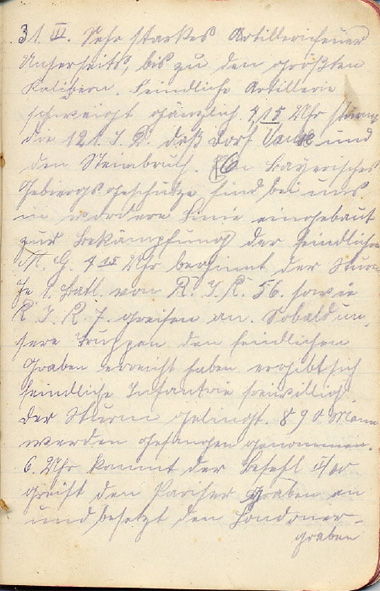 31. III. Sehr starkes Artilleriefeuer
Unserseits, bis zu den größten
Kalibern. Feindliche Artillerie
schweigt gänzlich. 7 15 Uhr stürm
die 121. I. D. daß Dorf Vaux und
den Steinbruch. Bayerisches
Gebirgsgeschütze sind bei uns
in vordere Linie eingebaut
zur Bekämpfung der feindlichen
M. G. 4 15 Uhr beginnt der Sturm
Je 1. Batl. von R. I. R. 56. sowie
R. I. R. 7. greifen an. Sobald un-
sere Truppen den feindlichen
Graben erreicht haben ergibt sich
feindliche Infantrie freiwillich.
Der Sturm gelingt. 890 Mann
werden gefangen genommen.
6. Uhr kommt der Befehl
greift den Pariser graben an
und besetzt den Londoner-
graben